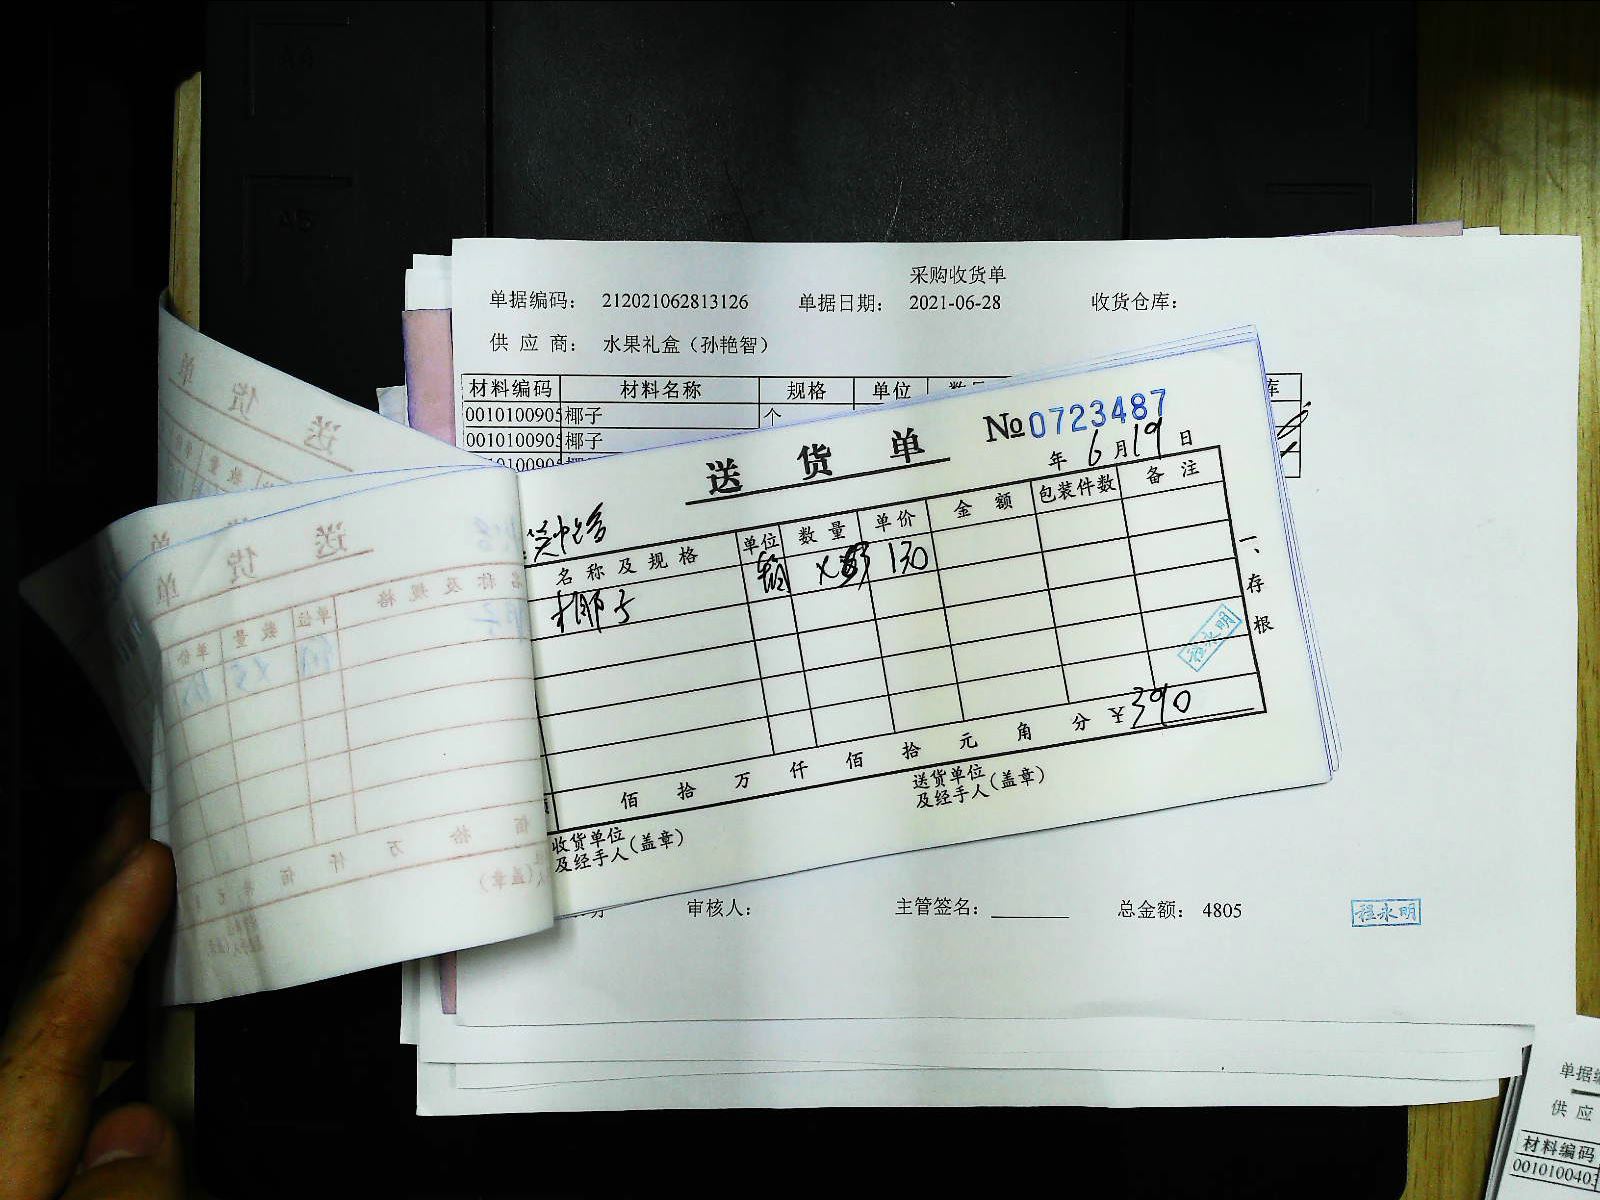 采购收货单
单据编码： 212021062813126 单据日期： 2021-06-28 收货仓库：
供 应 商： 水果礼盒（孙艳智）
材料编码 材料名称 规格 单位 库
0010100905 椰子 个
0010100905 椰子
送 货 单
№0723487
年 6月19日
名 称 及 规 格 单位 数 量 单 价 金 额 包装件数 备 注
椰子 箱 130
一、存根
程永明
佰 拾 万 仟 佰 拾 元 角 分 ¥390
收货单位
及经手人（盖章）
送货单位
及经手人（盖章）
审核人： 主管签名： 总金额： 4805
程永明
单据编
供 应
材料编码
001010040